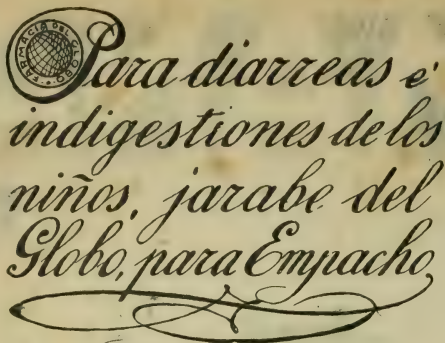 FARMACIA DEL GLOBO
Para diarreas é
indigestiones de los
niños, jarabe del
Globo, para Empacho